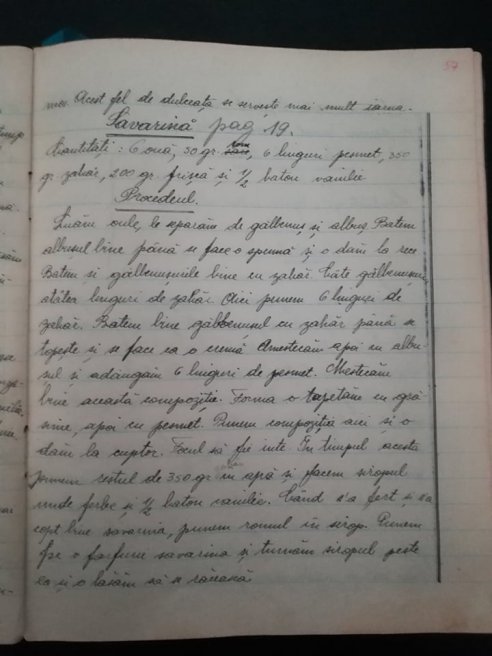 57
mac. Acest fel de dulceață se servește mai mult iarna.
Savarină pag 19.
Cantități: 6 ouă, 50 gr. rom, 6 linguri pesmet, 350
gr. zahăr, 200 gr. frișcă și 1/2 baton vanilie
Procedeul.
Luăm ouăle, le separăm de gălbenuș și albuș. Batem
albușul bine până se face o spumă și o dăm la rece
Batem și gălbenușurile bine cu zahăr. Câte gălbenușuri
atâtea linguri de zahăr. Aici punem 6 linguri de
zahăr. Batem bine gălbenușul cu zahăr până se
topește și se face ca o cremă. Amestecăm apoi cu albu-
șul și adăugăm 6 linguri de pesmet. Mestecăm
bine această compoziție. Forma o tapetăm cu gră
sime, apoi cu pesmet. Punem compoziția aici și o
dăm la cuptor. Focul să fie iute. În timpul acesta
punem restul de 350 gr. în apă și facem siropul
unde fierbe și 1/2 baton vanilie. Când s'a fert și s'a
copt bine savarina, punem romul în sirop. Punem
pe o farfurie savarina și turnăm siropul peste
ea și o lăsăm să se răcească.